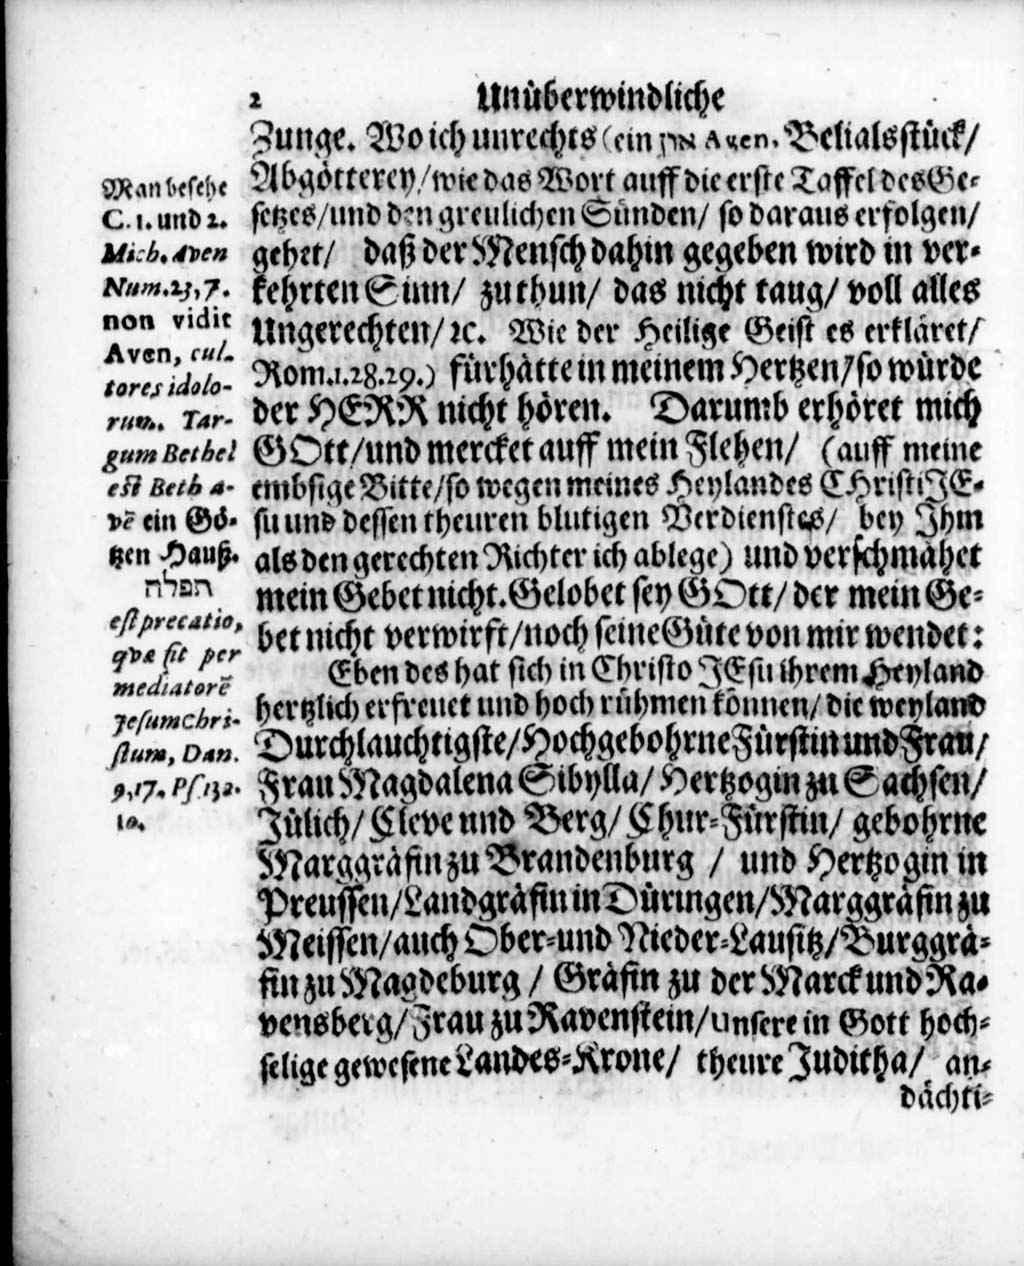 2 Unüberwindliche
Zunge. Wo ich unrechts (ein און Aven. Belialsstück/
Abgötterey/ wie das Wort auff die erste Taffel des Ge-
setzes/ und den greulichen Sünden/ so daraus erfolgen/
gehet/ daß der Mensch dahin gegeben wird in ver-
kehrten Sinn/ zu thun/ das nicht taug/ voll alles
Ungerechten/ ꝛc. Wie der Heilige Geist es erkläret/
Rom.1.28.29.) fürhätte in meinem Hertzen/ so würde
der HERR nicht hören. Darumb erhöret mich
GOtt/ und mercket auff mein Flehen/ (auff meine
embsige Bitte/ so wegen meines Heylandes CHristi JE-
su und dessen theuren blutigen Verdienstes/ bey Ihm
als den gerechten Richter ich ablege) und verschmähet
mein Gebet nicht. Gelobet sey GOtt/ der mein Ge-
bet nicht verwirft/ noch seine Güte von mir wendet:
Eben des hat sich in Christo JEsu ihrem Heyland
hertzlich erfreuet und hoch rühmen können/ die weyland
Durchlauchtigste/ Hochgebohrne Fürstin und Frau/
Frau Magdalena Sibylla/ Hertzogin zu Sachsen/
Jülich/ Cleve und Berg/ Chur-Fürstin/ gebohrne
Marggräfin zu Brandenburg / und Hertzogin in
Preussen/ Landgräfin in Düringen/ Marggräfin zu
Meissen/ auch Ober-und Nieder-Lausitz/ Burggrä-
fin zu Magdeburg / Gräfin zu der Marck und Ra-
vensberg/ Frau zu Ravenstein/ unsere in Gott hoch-
selige gewesene Landes-Krone/ theure Juditha/ an-
dächti-
Man besehe
C. 1. und 2.
Mich. Aven
Num.23,7.
non vidit
Aven, cul-
tores idolo-
rum. Tar-
gum Bethel
est Beth a-
vē ein Gö-
tzen Hauß.
תפלה
est precatio,
qvæ fit per
mediatorē
Jesum Chri-
stum, Dan.
9,17. Ps.132.
10.